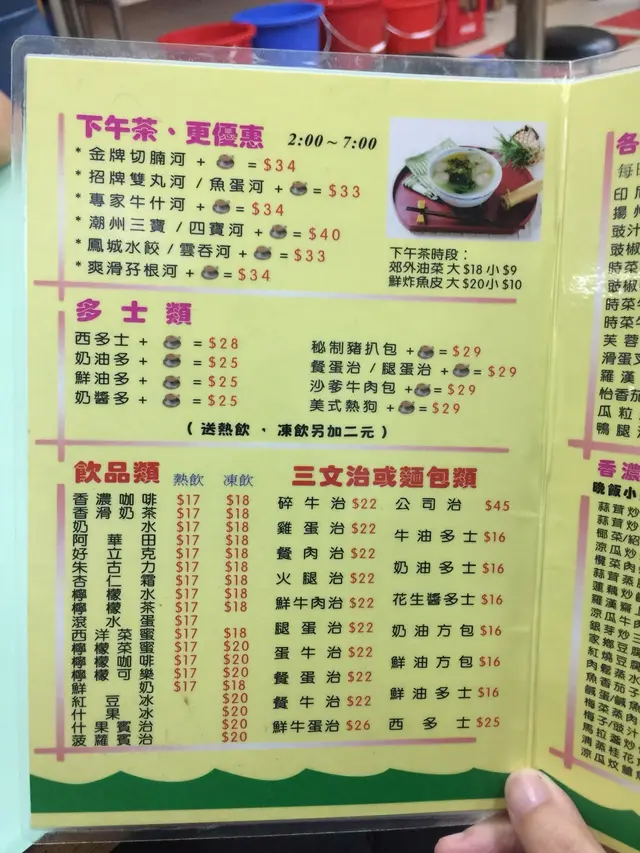 下午茶、更優惠 2:00~7:00
* 金牌切腩河 + = $34
* 招牌雙丸河 / 魚蛋河 + = $33
* 專家牛什河 + = $34
* 潮州三寶 / 四寶河 + = $40
* 鳳城水餃 / 雲吞河 + = $33
* 爽滑孖根河 + = $34
下午茶時段：
郊外油菜 大 $18 小 $9
鮮炸魚皮 大 $20 小 $10
多士類
西多士 + = $28
奶油多 + = $25
鮮油多 + = $25
奶醬多 + = $25
秘制豬扒包 + = $29
餐蛋治 / 腿蛋治 + = $29
沙爹牛肉包 + = $29
美式熱狗 + = $29
( 送熱飲 ， 凍飲另加二元 )
飲品類 熱飲 凍飲
香濃咖啡 $17 $18
香滑奶茶 $17 $18
奶水 $17 $18
阿華田 $17 $18
好立克 $17 $18
朱古力 $17 $18
杏仁霜 $17 $18
檸檬水 $17 $18
檸檬茶 $17 $18
滾水蛋 $17
西洋菜蜜 $17 $18
檸檬菜蜜 $17 $20
檸檬咖啡 $17 $20
檸檬可樂 $17 $20
鮮奶 $17 $18
紅豆冰 $20
什果冰 $20
什果賓治 $20
菠蘿賓治 $20
三文治或麵包類
碎牛治 $22
雞蛋治 $22
餐肉治 $22
火腿治 $22
鮮牛肉治 $22
腿蛋治 $22
蛋牛治 $22
餐蛋治 $22
餐牛治 $22
鮮牛蛋治 $26
公司治 $45
牛油多士 $16
奶油多士 $16
花生醬多士 $16
奶油方包 $16
鮮油方包 $16
鮮油多士 $16
西多士 $25
各
每日
印
揚州
豉汁
豉椒
時菜
豉椒
時菜牛
時菜
芙蓉
滑蛋叉
羅漢
怡香茄
瓜粒
鴨腿
香濃
晚飯小
蒜茸炒
蒜茸炒
椰菜/紹
涼瓜炒
欖菜肉
蒜茸蒸
蓮藕炒
羅漢齋
涼瓜牛肉
銀芽炒
家鄉豆腐
紅燒豆腐
肉鬆蒸水
魚香茄子
鹹蛋/鹹魚
梅菜蒸肉
梅子/豉汁
馬拉盞炒
清蒸桂花
涼瓜炆